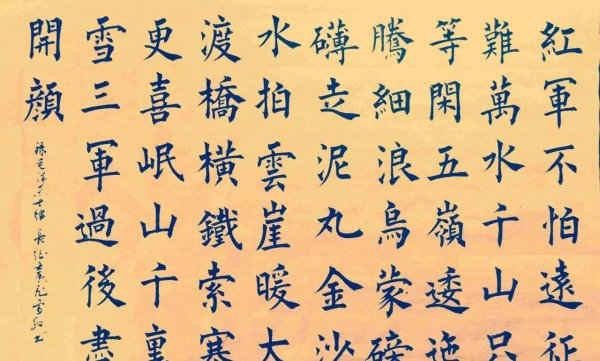 紅軍不怕遠征
難萬水千山只
等閑五嶺逶迤
騰細浪烏蒙磅
礴走泥丸金沙
水拍雲崖暖大
渡橋橫鐵索寒
更喜岷山千
雪三軍過後盡
開顏
錄毛澤东七律長征